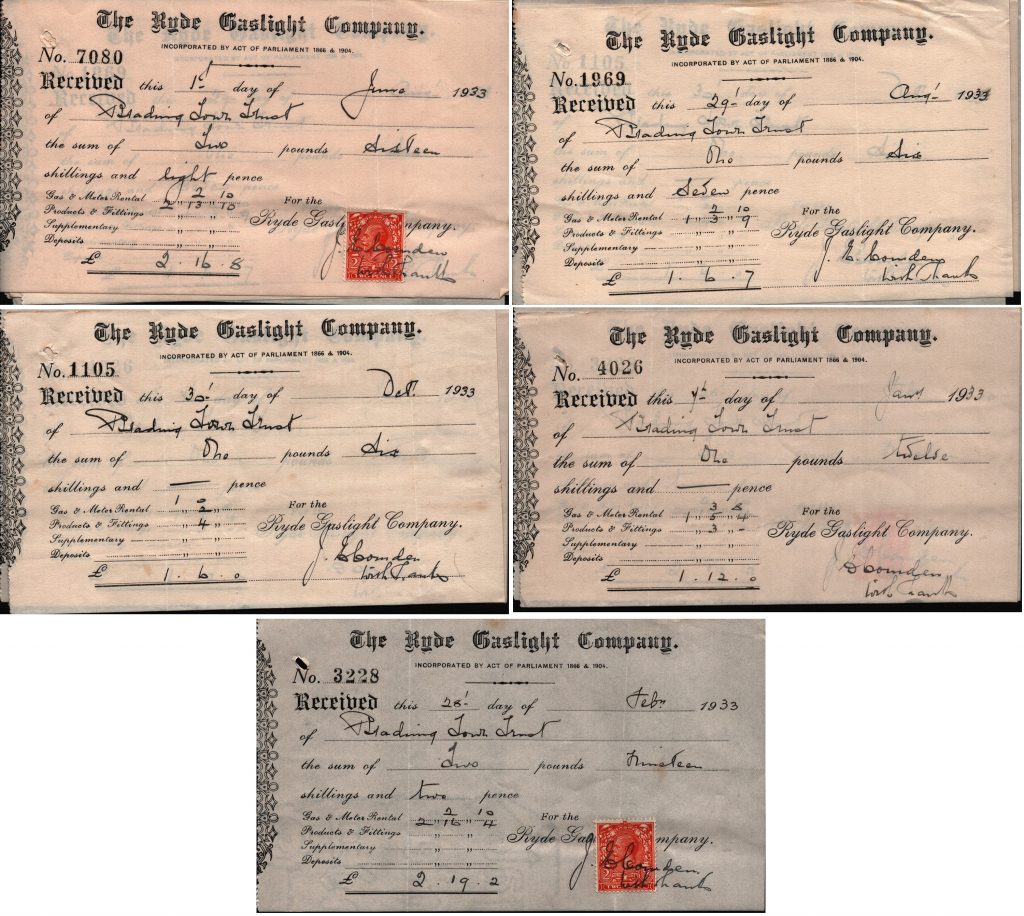 The Ryde Gaslight Company.
INCORPORATED BY ACT OF PARLIAMENT 1866 & 1904.
No. 7080
Received this 1st day of June 1933
of Brading Town Trust
the sum of Two pounds Sixteen
shillings and eight pence
2 10
Gas & Meter Rental 2 " 13 " 10
Products & Fittings " "
Supplementary " "
Deposits " "
£ 2 . 16 . 8
For the
Ryde Gaslight Company.
J. E. Comden
with Thanks
The Ryde Gaslight Company.
INCORPORATED BY ACT OF PARLIAMENT 1866 & 1904.
No. 1969
Received this 29' day of Aug' 1933
of Brading Town Trust
the sum of One pounds Six
shillings and Seven pence
2 10
Gas & Meter Rental 1 " 3 " 9
Products & Fittings " "
Supplementary " "
Deposits " "
£ 1 . 6 . 7
For the
Ryde Gaslight Company.
J. E. Comden
with Thanks
The Ryde Gaslight Company.
INCORPORATED BY ACT OF PARLIAMENT 1866 & 1904.
No. 1105
Received this 30' day of Oct. 1933
of Brading Town Trust
the sum of One pounds Six
shillings and — pence
1 0
Gas & Meter Rental " 2 "
Products & Fittings " 4 "
Supplementary " "
Deposits " "
£ 1 . 6 . 0
For the
Ryde Gaslight Company.
J. E. Comden
with Thanks
The Ryde Gaslight Company.
INCORPORATED BY ACT OF PARLIAMENT 1866 & 1904.
No. 4026
Received this day of Jany 1933
of Brading Town Trust
the sum of One pounds twelve
shillings and — pence
3 8
Gas & Meter Rental 1 " 5 " 4
Products & Fittings " 3 " -
Supplementary " "
Deposits " "
£ 1 . 12 . 0
For the
Ryde Gaslight Company.
J. E. Comden
with Thanks
The Ryde Gaslight Company.
INCORPORATED BY ACT OF PARLIAMENT 1866 & 1904.
No. 3228
Received this 28' day of Feby 1933
of Brading Town Trust
the sum of Two pounds nineteen
shillings and two pence
2 10
Gas & Meter Rental 2 " 16 " 4
Products & Fittings " "
Supplementary " "
Deposits " "
£ 2 . 19 . 2
For the
Ryde Gas mpany.
J. E. Comden
with Thanks